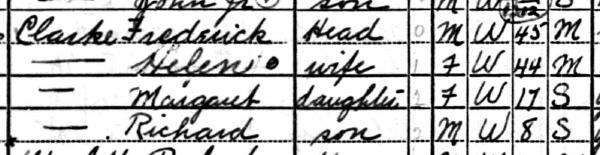 son M W S
Clarke Frederick Head 0 M W 45 M
— Helen wife 1 F W 44 M
— Margaret daughter 2 F W 17 S
— Richard son 2 M W 8 S